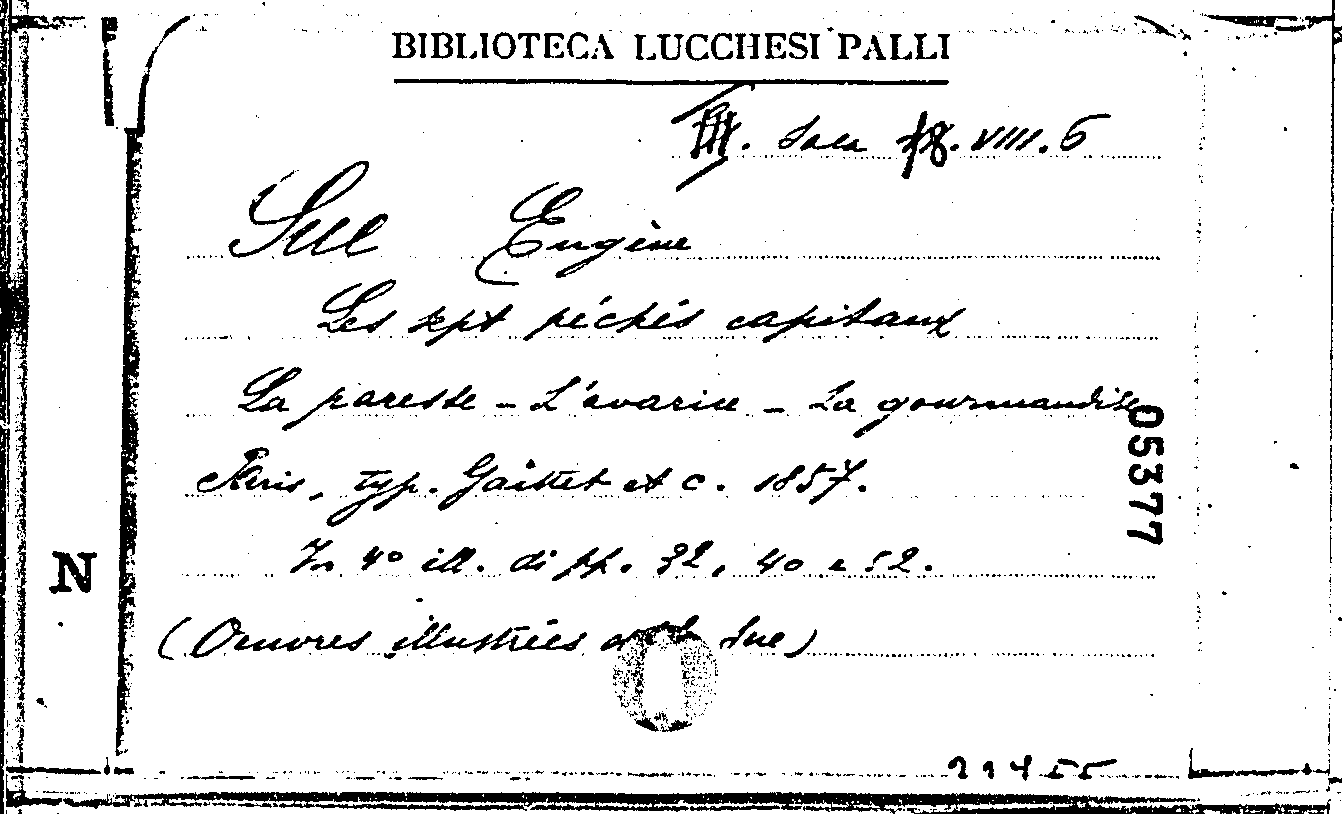 BIBLIOTECA LUCCHESI PALLI
III. Sala 18. VIII. 6
Sue Eugène
Les sept péchés capitaux
La paresse - L'avarice - La gourmandise
05377
Paris, typ. Gaittet et C. 1857.
In 4° ill. di pp. 32, 40 e 52.
N
(Oeuvres illustrées Sue)